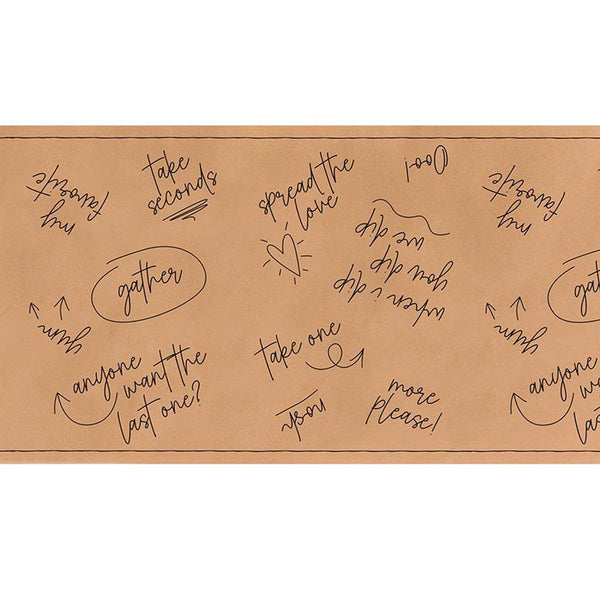 my
favorite
take
seconds
spread the
love
Ooo!
my
favorite
when i dip
you dip
we dip
gather
yum
take one
anyone
want the
last one?
nosh
more
please!
yum
anyone